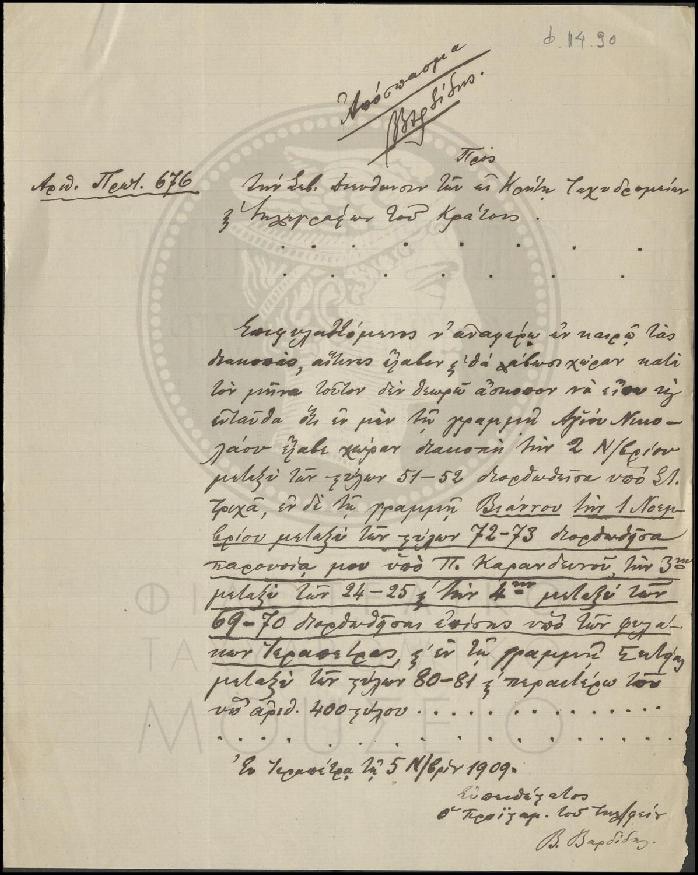 φ. 14.90
Ἀπόσπασμα
Βαρδίδης.
Πρὸς
Ἀριθ. Πρωτ. 676
τὴν Σεβ. Διεύθυνσιν τῶν ἐν Κρήτῃ Ταχυδρομείων
& Τηλεγράφων τοῦ Κράτους.
Ἐπιφυλαττόμενος ν' ἀναφέρω ἐν καιρῷ τὰς
διακοπάς, αἵτινες ἔλαβον & θὰ λάβωσι χώραν κατὰ
τὸν μῆνα τοῦτον δὲν θεωρῶ ἄσκοπον νὰ εἴπω
ἐνταῦθα ὅτι ἐν μὲν τῇ γραμμῇ Ἁγίου Νικο-
λάου ἔλαβε χώραν διακοπὴ τὴν 2 Ν/βρίου
μεταξὺ τῶν ξύλων 51-52 διορθωθεῖσα ὑπὸ Στ.
Τριχᾶ, ἐν δὲ τῇ γραμμῇ Βιάννου τὴν 1 Νοεμ-
βρίου μεταξὺ τῶν ξύλων 72-73 διορθωθεῖσα
παρουσίᾳ μου ὑπὸ Π. Καρανδεινοῦ, τὴν 3ην
μεταξὺ τῶν 24-25 & τὴν 4ην μεταξὺ τῶν
69-70 διορθωθείσης ἐπίσης ὑπὸ τῶν φυλά-
κων Ἱεραπέτρας, & ἐν τῇ γραμμῇ Σητείας
μεταξὺ τῶν ξύλων 80-81 & περαιτέρω τοῦ
ὑπ' ἀριθ. 400 ξύλου
Ἐν Ἱεραπέτρᾳ τῇ 5 Ν/βρίου 1909.
Εὐπειθέστατος
Ὁ Προϊστάμ. τοῦ Τηλ/φείου
Β. Βαρδίδης
ΦΙΛΟΤΕΛΙΚΟ
ΤΑΧΥΔΡΟΜΙΚΟ
ΜΟΥΣΕΙΟ